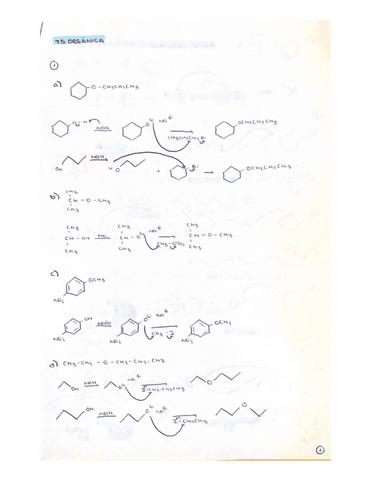 TD ORGANICA
1
a)
O-CH₂CH₂CH₃
O-H NaH O⁻ Na⁺ CH₃CH₂CH₂Br OCH₂CH₂CH₃
OH NaH O⁻ + Br → OCH₂CH₂CH₃
b)
CH₃
CH-O-CH₃
CH₃
CH₃ CH₃ CH₃
CH-OH Na CH-O⁻ Na⁺ CH-O-CH₃
CH₃ CH₃ CH₃
c)
OCH₃
NO₂
OH NaOH O⁻ Na⁺ CH₃-I OCH₃
NO₂ NO₂ NO₂
d) CH₃-CH₂-O-CH₂-CH₂-CH₃
OH NaH O⁻ Na⁺ O
OH NaH O⁻ Na⁺ O